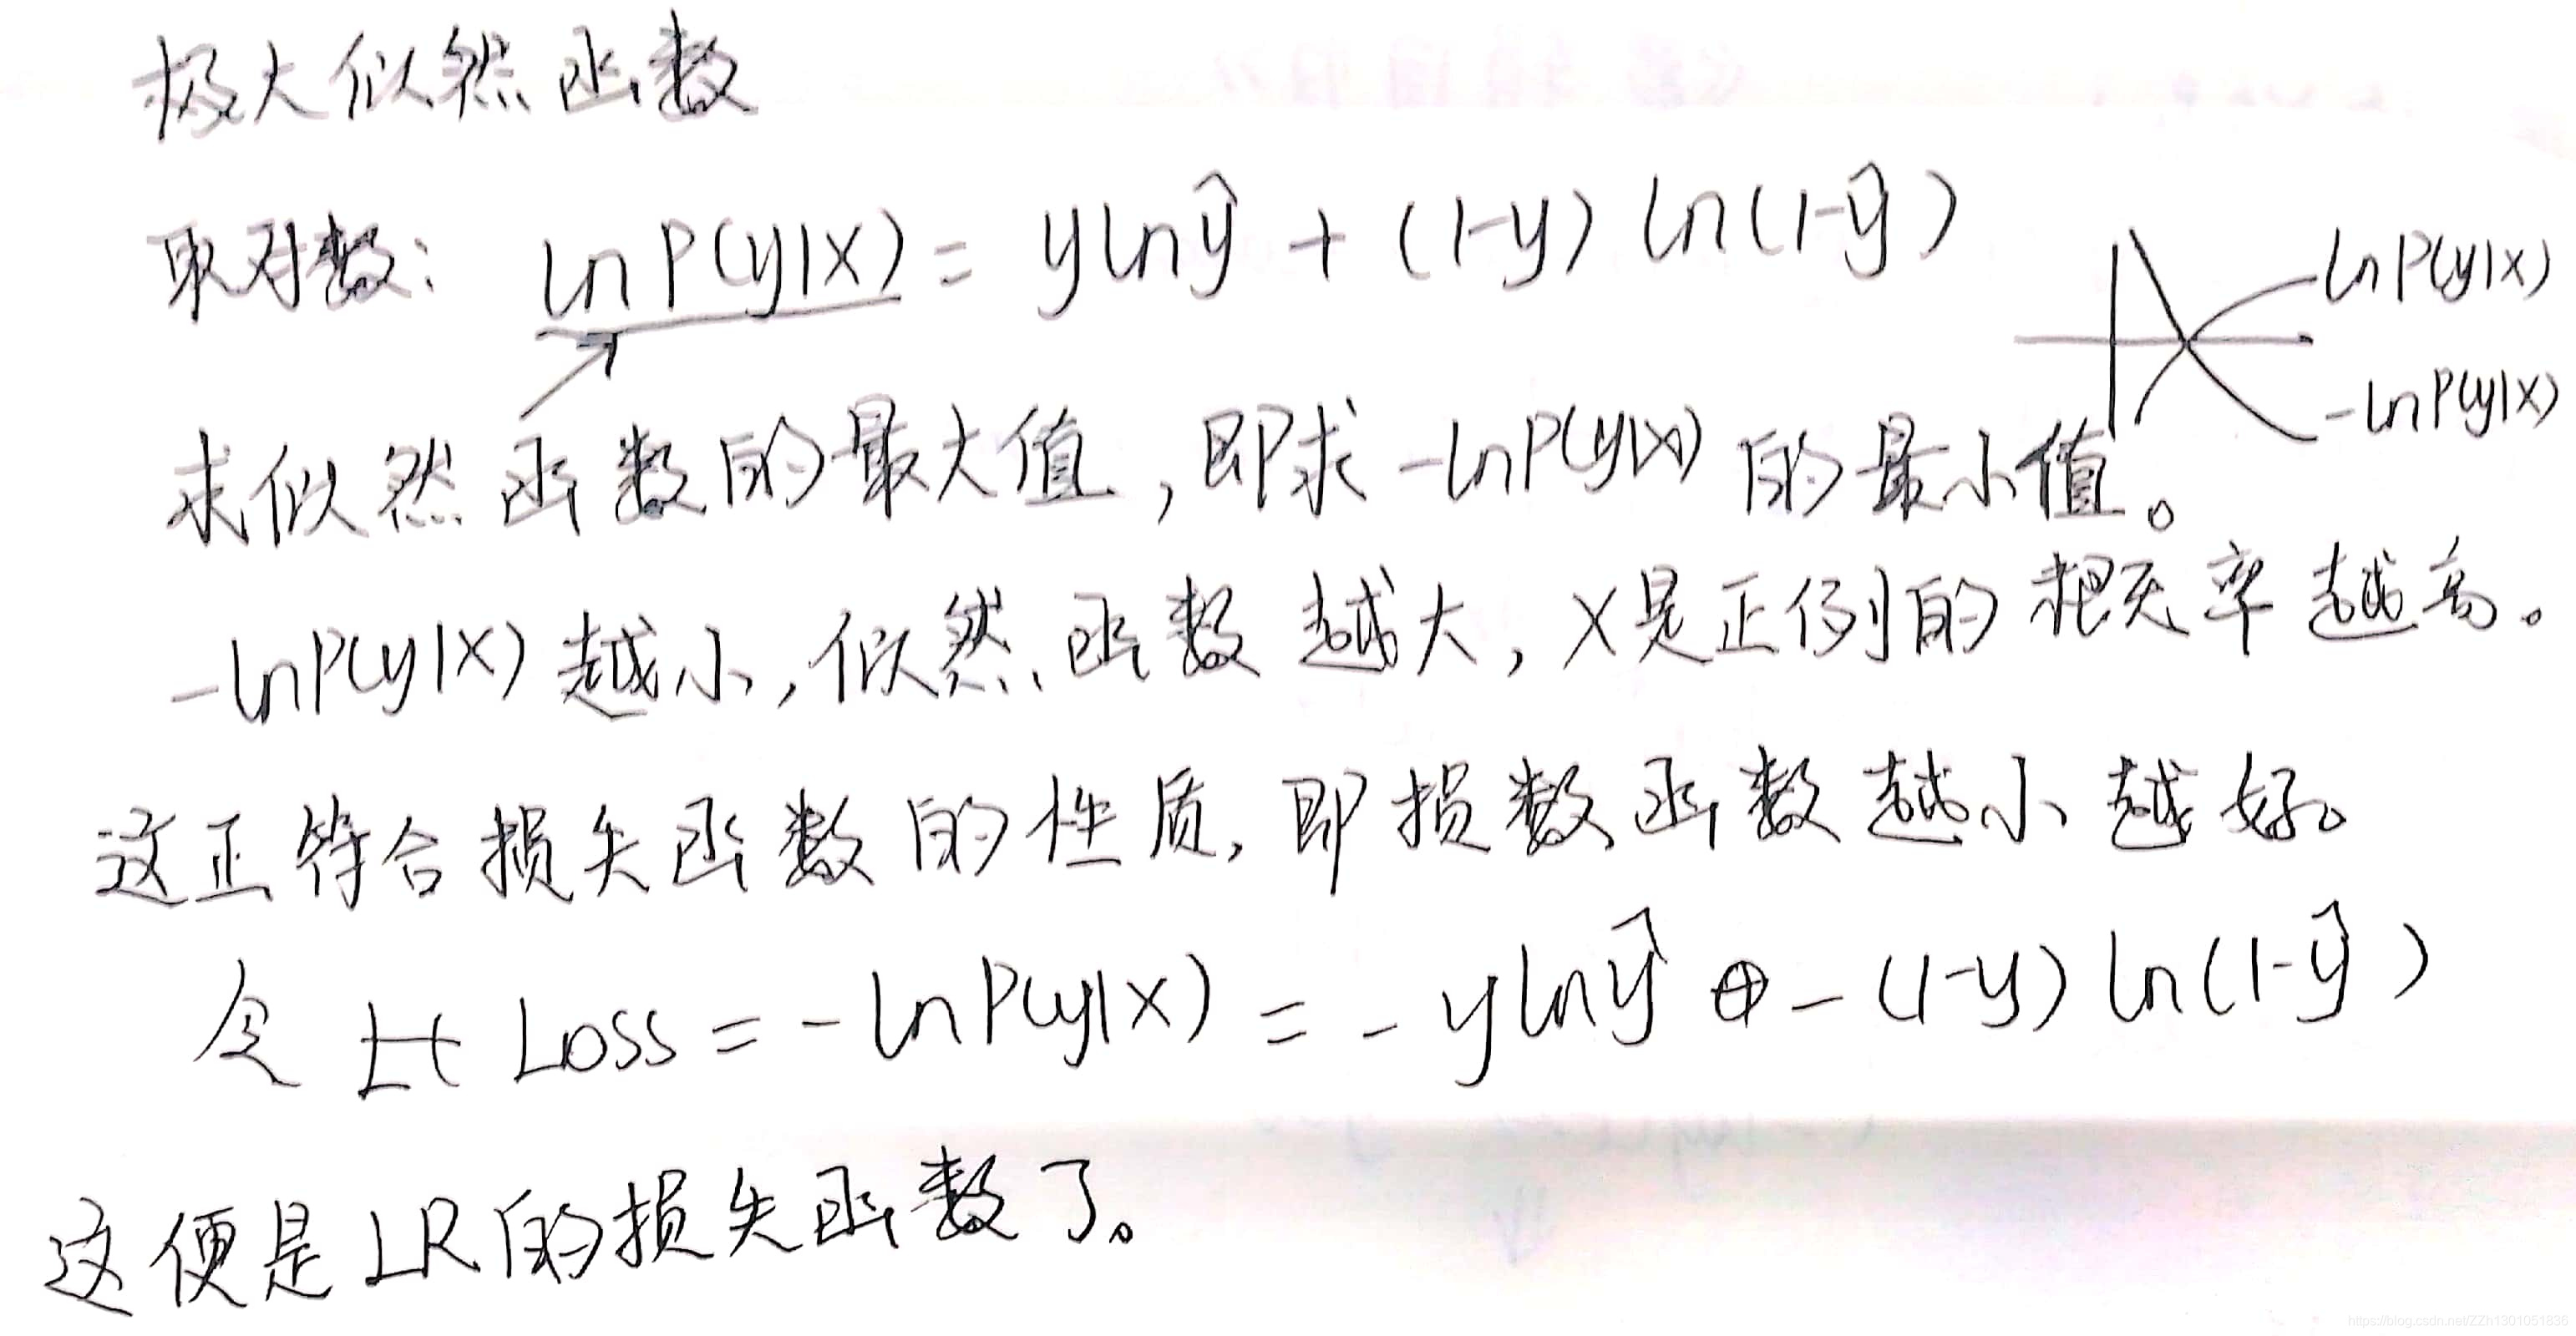 极大似然函数
取对数: ln P(y|x) = y ln ŷ + (1-y) ln(1-ŷ)
ln P(y|x)
-ln P(y|x)
求似然函数的最大值，即求 -ln P(y|x) 的最小值。
-ln P(y|x) 越小，似然函数越大，X是正例的概率越高。
这正符合损失函数的性质，即损数函数越小越好。
令 Loss = -ln P(y|x) = - y ln ŷ - (1-y) ln(1-ŷ)
这便是LR的损失函数了。
https://blog.csdn.net/ZZh1301051836